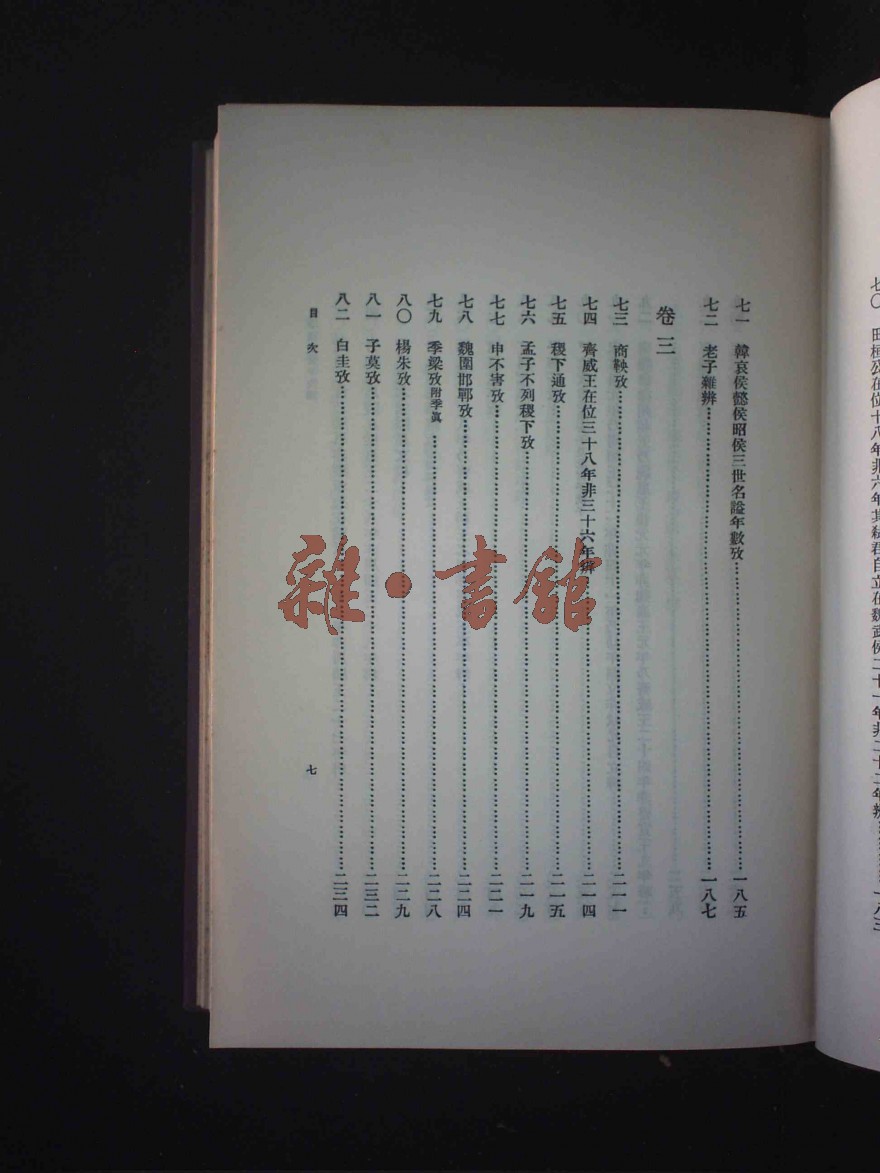 七〇 田桓公在位十八年非六年其弒君自立在魏武侯二十一年非二十二年辨……一八三
七一 韓哀侯懿侯昭侯三世名謚年數攷……一八五
七二 老子雜辨……一八七
卷三
七三 商鞅攷……二一一
七四 齊威王在位三十八年非三十六年辨……二一四
七五 稷下通攷……二一五
七六 孟子不列稷下攷……二一九
七七 申不害攷……二二一
七八 魏圍邯鄲攷……二二四
七九 季梁攷附季眞……二二八
八〇 楊朱攷……二二九
八一 子莫攷……二三二
八二 白圭攷……二三四
目次 七
雜·書館